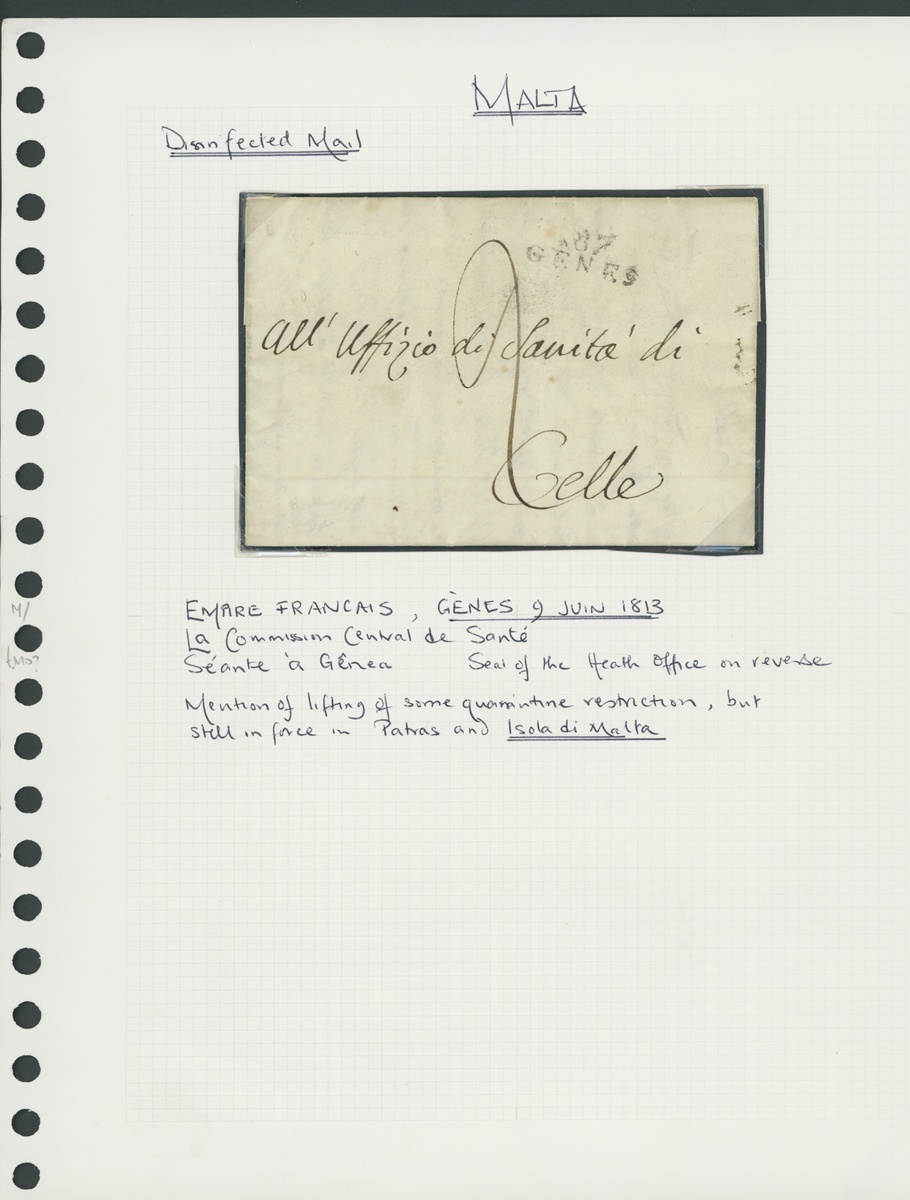 MALTA
Disinfected Mail
87
GÊNES
2
all' Uffizio di Sanità di
Celle
EMPIRE FRANCAIS, GÈNES 9 JUIN 1813
La Commission Central de Santé
Séante à Gênea Seal of the Heath Office on reverse
M/
Mention of lifting of some quarintine restriction, but
still in force in Patras and Isola di Malta